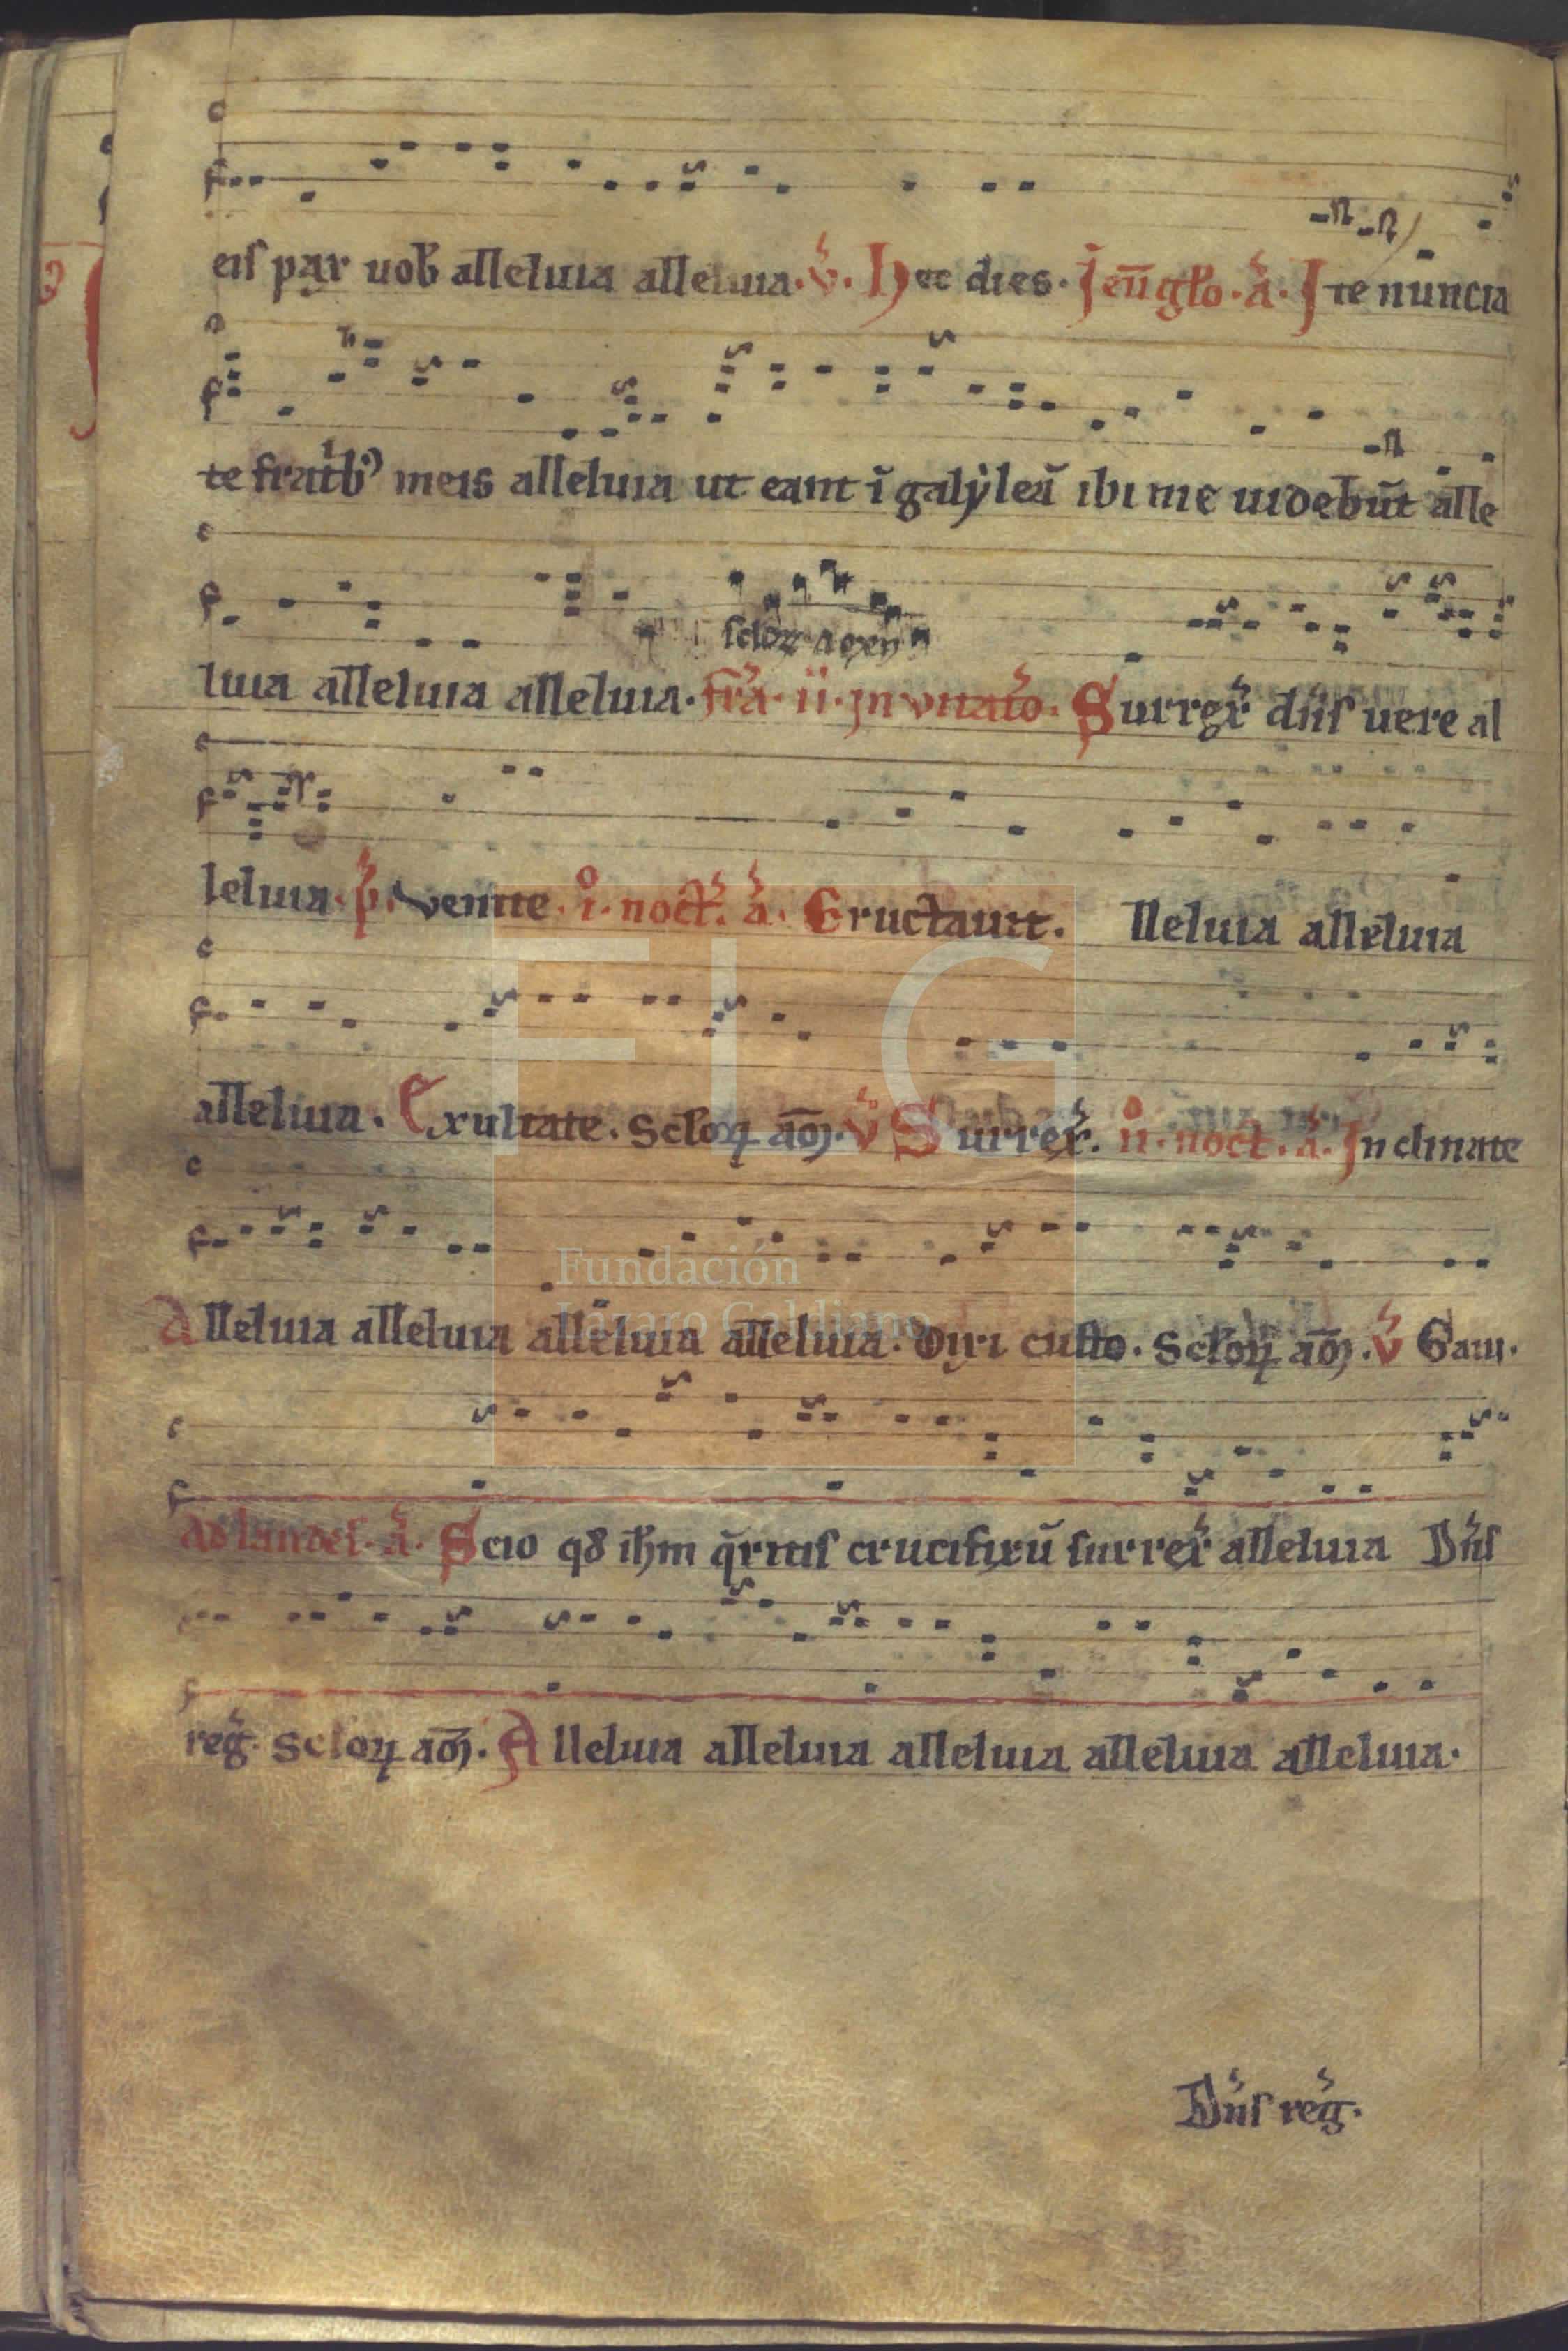 eis pax uob̄ alleluia alleluia. v̄. Hec dies. J eū̄glo. ā. Ite nuncia
te fratb᾽ meis alleluia ut eant ī galyleā ibi me uidebūt alle
sclꝝ amen
luia alleluia alleluia. fr̄a. ii. in uitato. Surrex̄ dn̄s uere al
leluia. p̄. Venite. i. noct̄. ā. Eructauit. lleluia alleluia
alleluia. Exultate. sclꝝ am̄. v̄ Surrex̄. ii. noct. ā. Inclinate
Alleluia alleluia alleluia alleluia. Dixi custo. sclꝝ am̄. v̄ Gaui.
ad laudes. ā. Scio qd ihm q̄ritis crucifixū surrex̄ alleluia Dn̄s
reḡ. sclꝝ am̄. Alleluia alleluia alleluia alleluia alleluia.
Dn̄s reḡ.
FLG
Fundación
Lázaro Galdiano